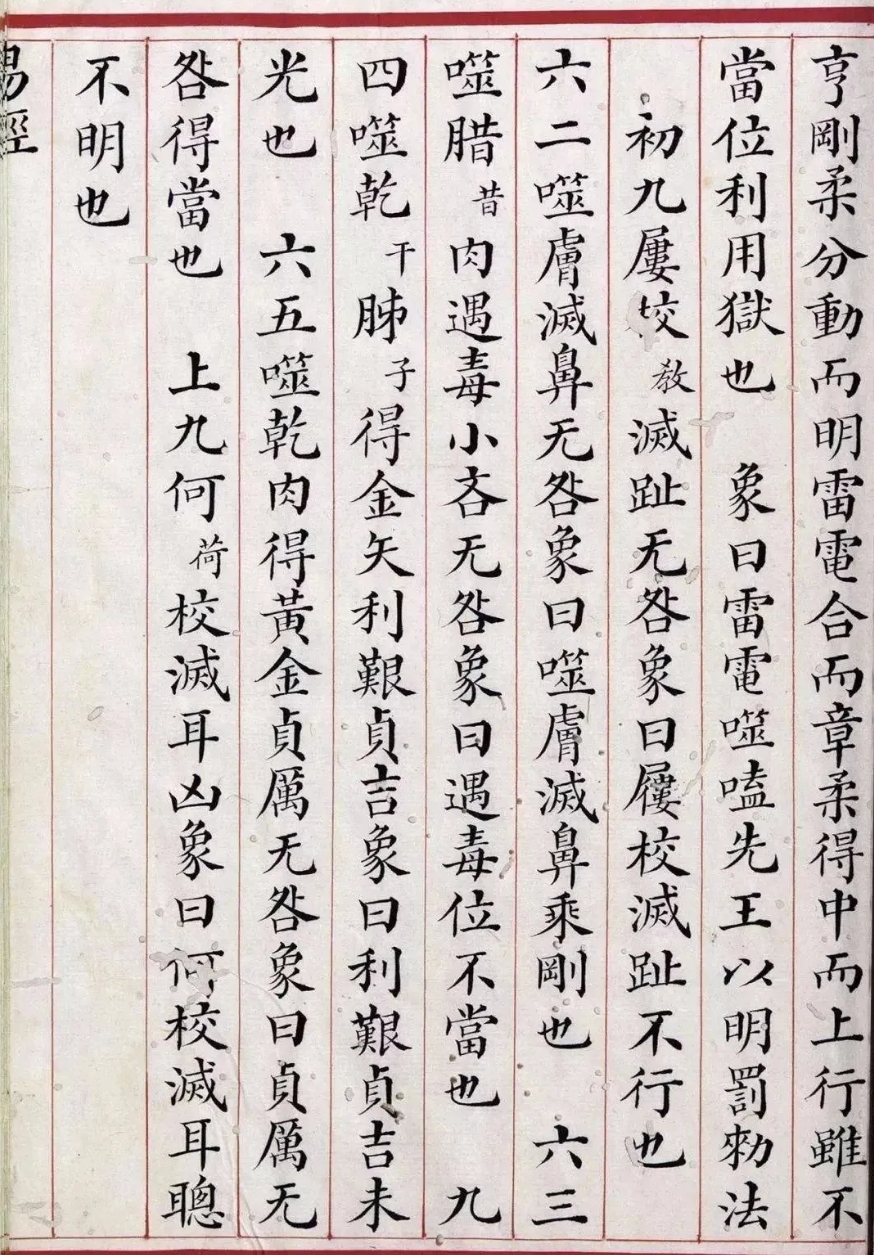 亨剛柔分動而明雷電合而章柔得中而上行雖不
當位利用獄也　象曰雷電噬嗑先王以明罰勑法
初九屢校教滅趾无咎象曰屨校滅趾不行也
六二噬膚滅鼻无咎象曰噬膚滅鼻乘剛也　六三
噬腊昔肉遇毒小吝无咎象曰遇毒位不當也　九
四噬乾干胏子得金矢利艱貞吉象曰利艱貞吉未
光也　六五噬乾肉得黃金貞厲无咎象曰貞厲无
咎得當也　上九何荷校滅耳凶象曰何校滅耳聰
不明也
易經